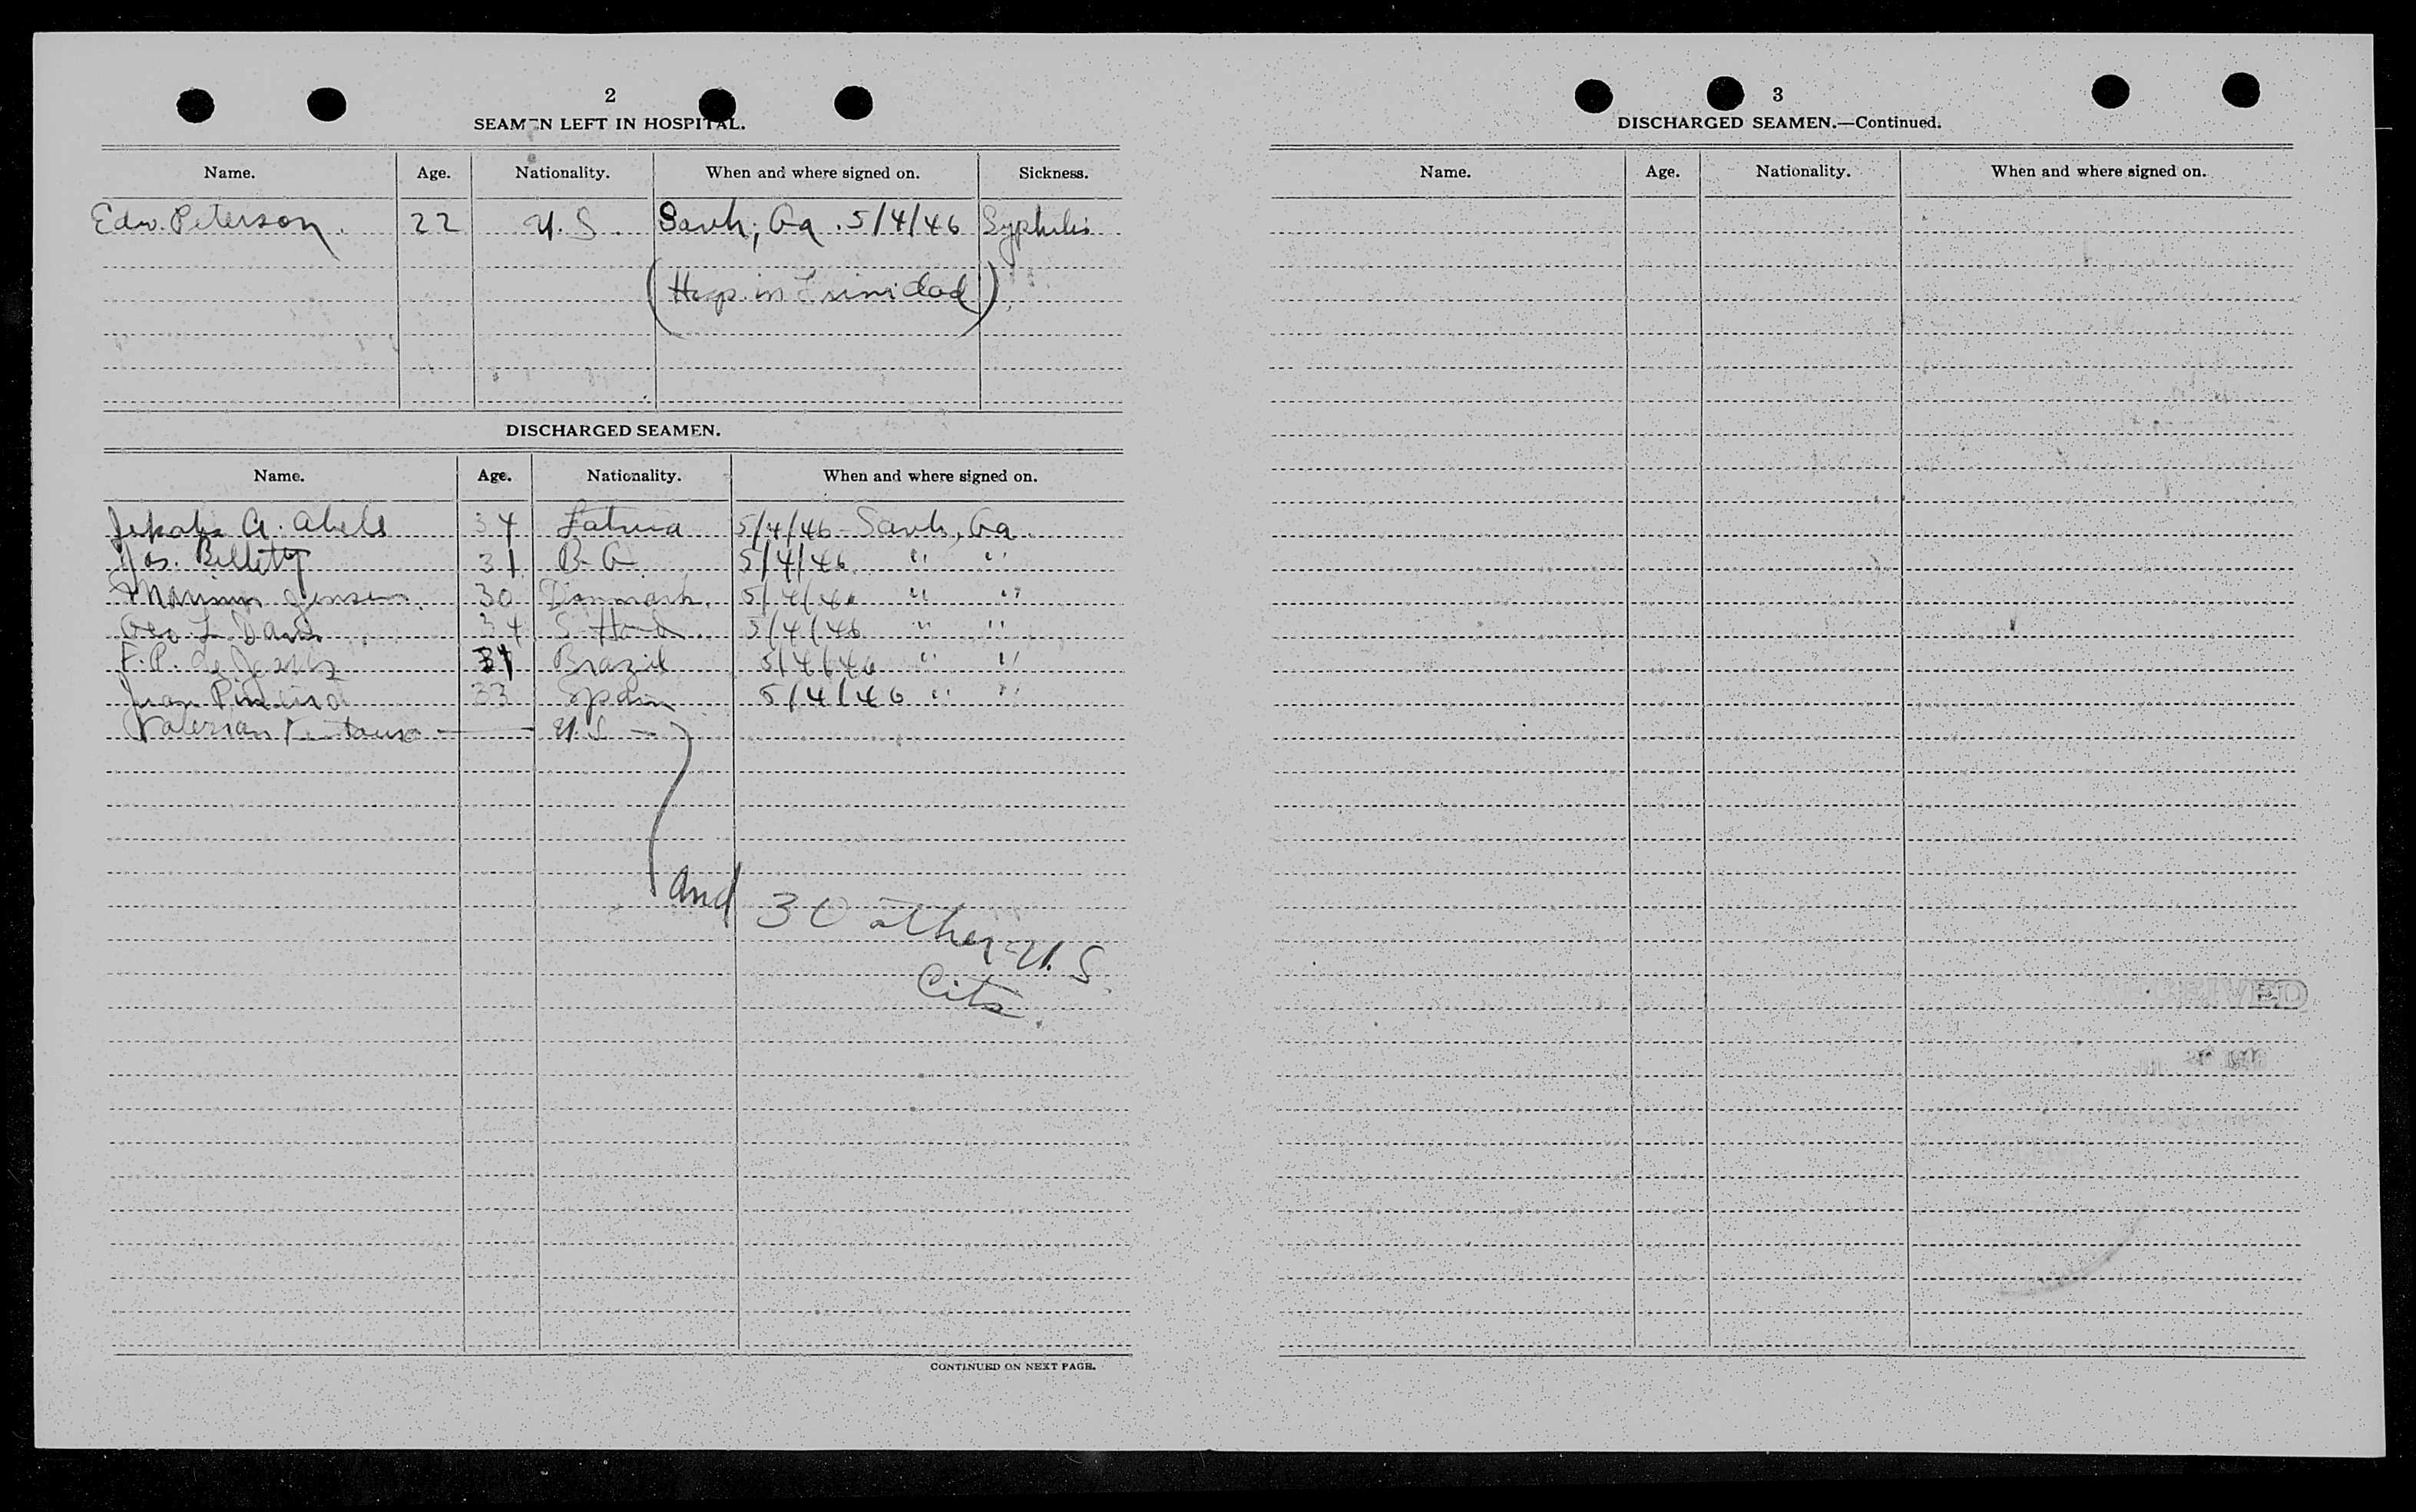 2
SEAMEN LEFT IN HOSPITAL.
Name. Age. Nationality. When and where signed on. Sickness.
Edw. Peterson. 22 U.S. Savh, Ga. 5/4/46 Syphilis
(Hosp. in Trinidad)
DISCHARGED SEAMEN.
Name. Age. Nationality. When and where signed on.
Jekabs A. Abels 34 Latvia 5/4/46 - Savh, Ga
Jos. Billety 31 B. G. 5/4/46 " "
Jensen. 30 Denmark. 5/4/46 " "
Geo. L. Davis 34 S. 5/4/46 " "
F. P. de Jesus 31 Brazil 5/4/46 " "
Juan Pineiro 33 Spain 5/4/46 " "
Valerian — U.S. —
and 30 other U.S.
Cits.
CONTINUED ON NEXT PAGE.
3
DISCHARGED SEAMEN.—Continued.
Name. Age. Nationality. When and where signed on.
RECEIVED